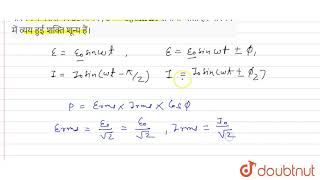 में व्यय हुई शक्ति शून्य है।
ε = ε₀sinωt , ε = ε₀sinωt ± ϕ₁
I = I₀sin(ωt - π/2) I = I₀sin(ωt ± ϕ₂)
P = Erms × Irms × Cosϕ
Erms = ε₀/√2 = ε₀/√2 , Irms = I₀/√2
doubtnut